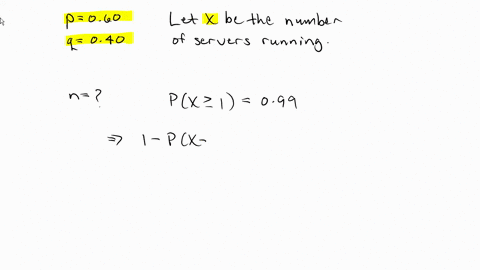 p = 0.60 Let X be the number
q = 0.40 of servers running.
n = ? P(X ≥ 1) = 0.99
⇒ 1 - P(X -